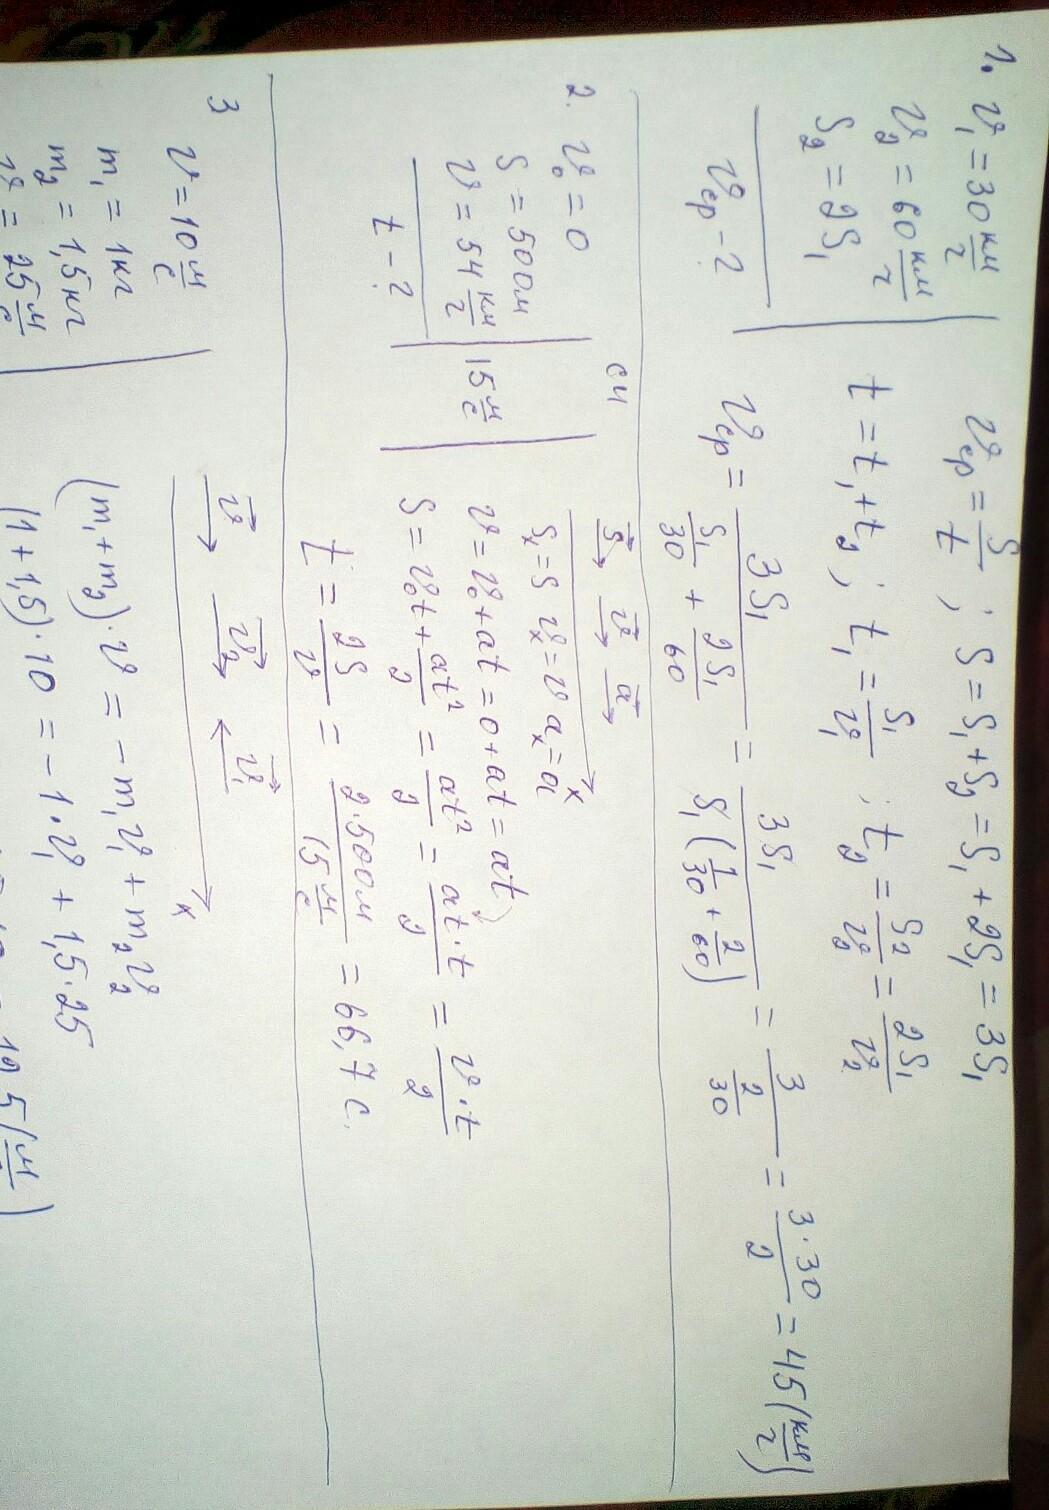 1. υ₁ = 30 км/г
υ₂ = 60 км/г
S₂ = 2S₁
υср - ?
υср = S/t ; S = S₁ + S₂ = S₁ + 2S₁ = 3S₁
t = t₁ + t₂ ; t₁ = S₁/υ₁ ; t₂ = S₂/υ₂ = 2S₁/υ₂
υср = 3S₁/(S₁/30 + 2S₁/60) = 3S₁/(S₁(1/30 + 2/60)) = 3/(2/30) = 3·30/2 = 45 (км/г)
2. υ₀ = 0
S = 500м
υ = 54 км/г
t - ?
СИ
15 м/с
S⃗ υ⃗ a⃗
x
Sₓ = S υₓ = υ aₓ = a
υ = υ₀ + at = 0 + at = at
S = υ₀t + at²/2 = at²/2 = at·t/2 = υ·t/2
t = 2S/υ = 2·500м/15 м/с = 66,7 с.
3
υ = 10 м/с
m₁ = 1кг
m₂ = 1,5кг
υ = 25 м/с
υ⃗ υ⃗₂ υ⃗₁
x
(m₁ + m₂)·υ = - m₁υ₁ + m₂υ₂
(1 + 1,5)·10 = - 1·υ₁ + 1,5·25